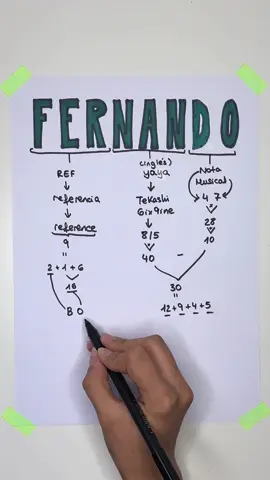 FERNANDO
REF
↓
referencia
↓
reference
9
=
2+1+6
16
BO
(inglés)
yaya
↓
Tekashi
6ix9ine
↓
8/5
40
Nota
Musical
4 7
×
28
10
-
30
=
12+9+4+5